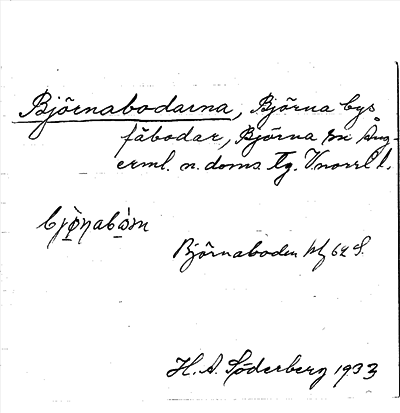 Björnabodarna, Björna bys
fäbodar, Björna sn Ång-
erml. n. doms. Tg. Vnorrl l.
Björnaboden 62 S.
H. A. Söderberg 1933